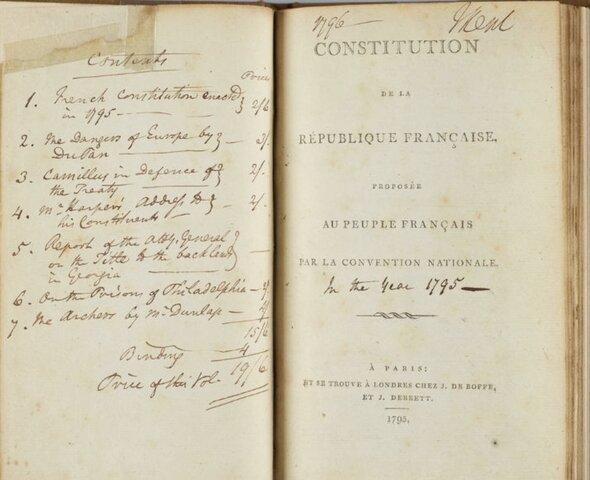 Contents
Price
1. French Constitution enacted
in 1795 — 2/6
2. The Dangers of Europe by
DuPan — 3/.
3. Camillus in Defence of
the Treaty 2/.
4. Mr Harper's Address to
his Constituents — 2/.
5. Report of the Atty. General
on the Title to the back land
in Georgia
6. On the Prisons of Philadelphia —
7. The Archers by Mr Dunlap —
15/6
Binding 4
Price of this Vol. 19/6
1796
CONSTITUTION
DE LA
RÉPUBLIQUE FRANÇAISE,
PROPOSÉE
AU PEUPLE FRANÇAIS
PAR LA CONVENTION NATIONALE.
In the Year 1795 —
À PARIS:
ET SE TROUVE À LONDRES CHEZ J. DE BOFFE,
ET J. DEBRETT.
1795.